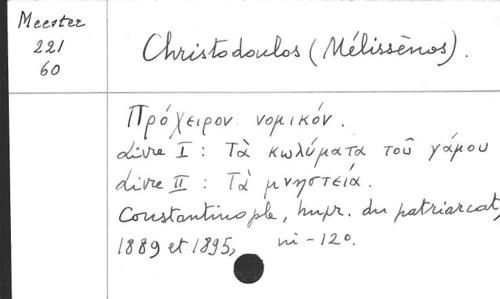 Meester
221
60
Christodoulos (Mélissènos).
Πρόχειρον νομικόν.
Livre I : Τὰ κωλύματα τοῦ γάμου
Livre II : Τὰ μνηστεία.
Constantinople, Impr. du patriarcat,
1889 et 1895, in-12°.